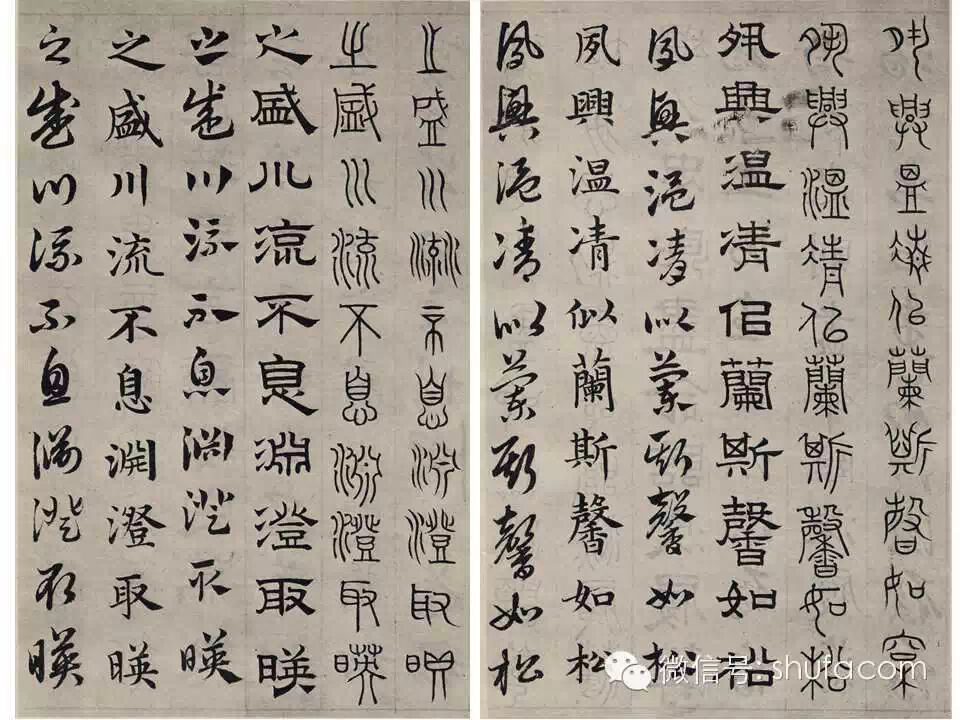 夙興温凊似蘭斯馨如松
夙興温凊似蘭斯馨如松
夙興温凊似蘭斯馨如松
夙興温凊似蘭斯馨如松
夙興温凊似蘭斯馨如松
夙興温凊似蘭斯馨如松
之盛川流不息淵澄取暎
之盛川流不息淵澄取暎
之盛川流不息淵澄取暎
之盛川流不息淵澄取暎
之盛川流不息淵澄取暎
之盛川流不息淵澄取暎
微信号: shufa.com